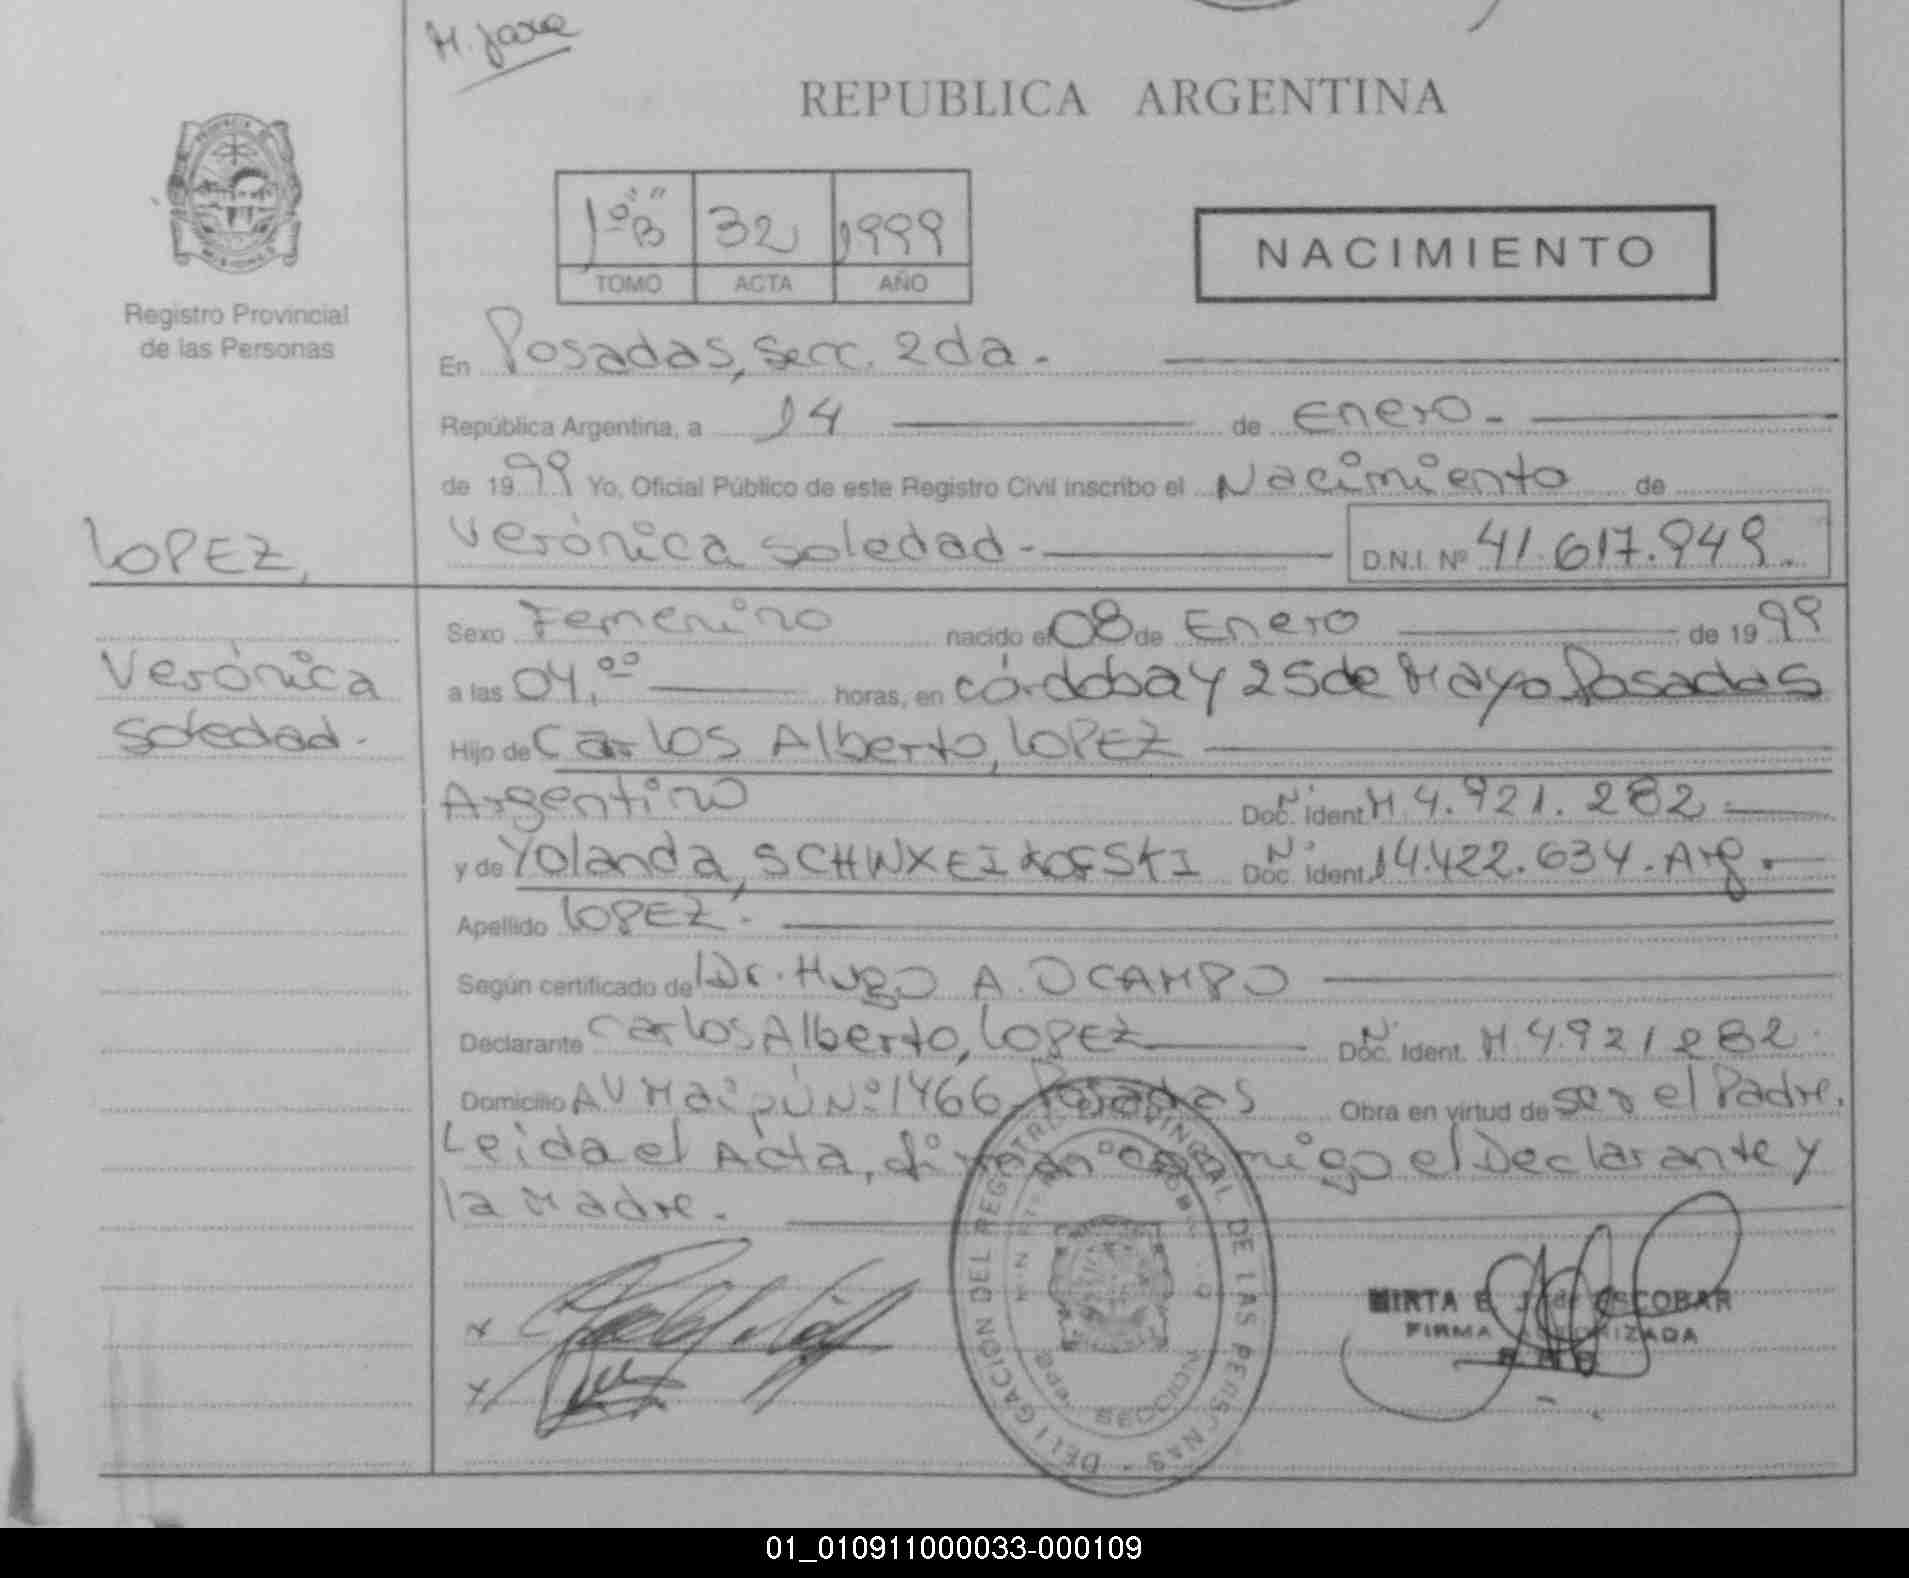 REPUBLICA ARGENTINA
1º "B" 32 1999
TOMO ACTA AÑO
NACIMIENTO
Registro Provincial
de las Personas
En Posadas, secc. 2da.
República Argentina, a 14 de Enero
de 1999 Yo, Oficial Público de este Registro Civil inscribo el Nacimiento de
Verónica Soledad D.N.I. Nº 41.617.949.
LOPEZ,
Verónica
Soledad.
Sexo Femenino nacido el 08 de Enero de 1999
a las 04,00 horas, en Córdoba y 25 de Mayo Posadas
Hijo de Carlos Alberto, LOPEZ
Argentino Doc. Ident. M 4.921.282
y de Yolanda, Doc. Ident. 14.422.634. Arg.
Apellido LOPEZ.
Según certificado de Dr. Hugo A. OCAMPO
Declarante Carlos Alberto, LOPEZ Doc. Ident. M 4.921282.
Domicilio AV Maipú Nº 1466 Posadas Obra en virtud de ser el Padre.
Leida el Acta, el Declarante y
la Madre.
DELEGACION DEL REGISTRO PROVINCIAL DE LAS PERSONAS
SECCION
MIRTA E. J. de ESCOBAR
FIRMA AUTORIZADA
01_010911000033-000109